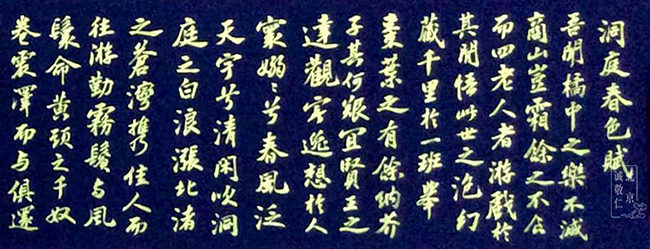 洞庭春色賦
吾聞橘中之樂不減
商山豈霜餘之不食
而四老人者游戲於
其間悟此世之泡幻
藏千里於一班舉
棗葉之有餘納芥
子其何艱宜賢王之
達觀寄逸想於人
寰嫋〻兮春風泛
天宇兮清閑吹洞
庭之白浪漲北渚
之蒼灣攜佳人而
往游勤霧鬢与風
鬟命黃頭之千奴
卷震澤而与俱還
北京
誠敬仁